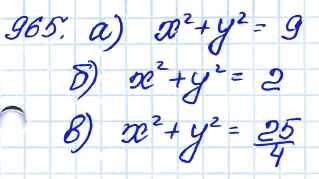 965. а) x² + y² = 9
б) x² + y² = 2
в) x² + y² = 25/4